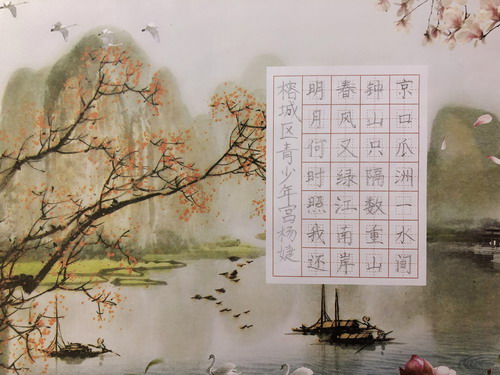 京口瓜洲一水间
钟山只隔数重山
春风又绿江南岸
明月何时照我还
榕城区青少年宫杨婕